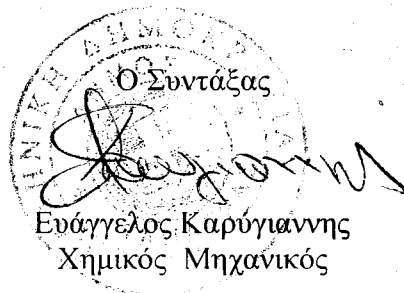 Ο Συντάξας
Ευάγγελος Καρύγιαννης
Χημικός Μηχανικός